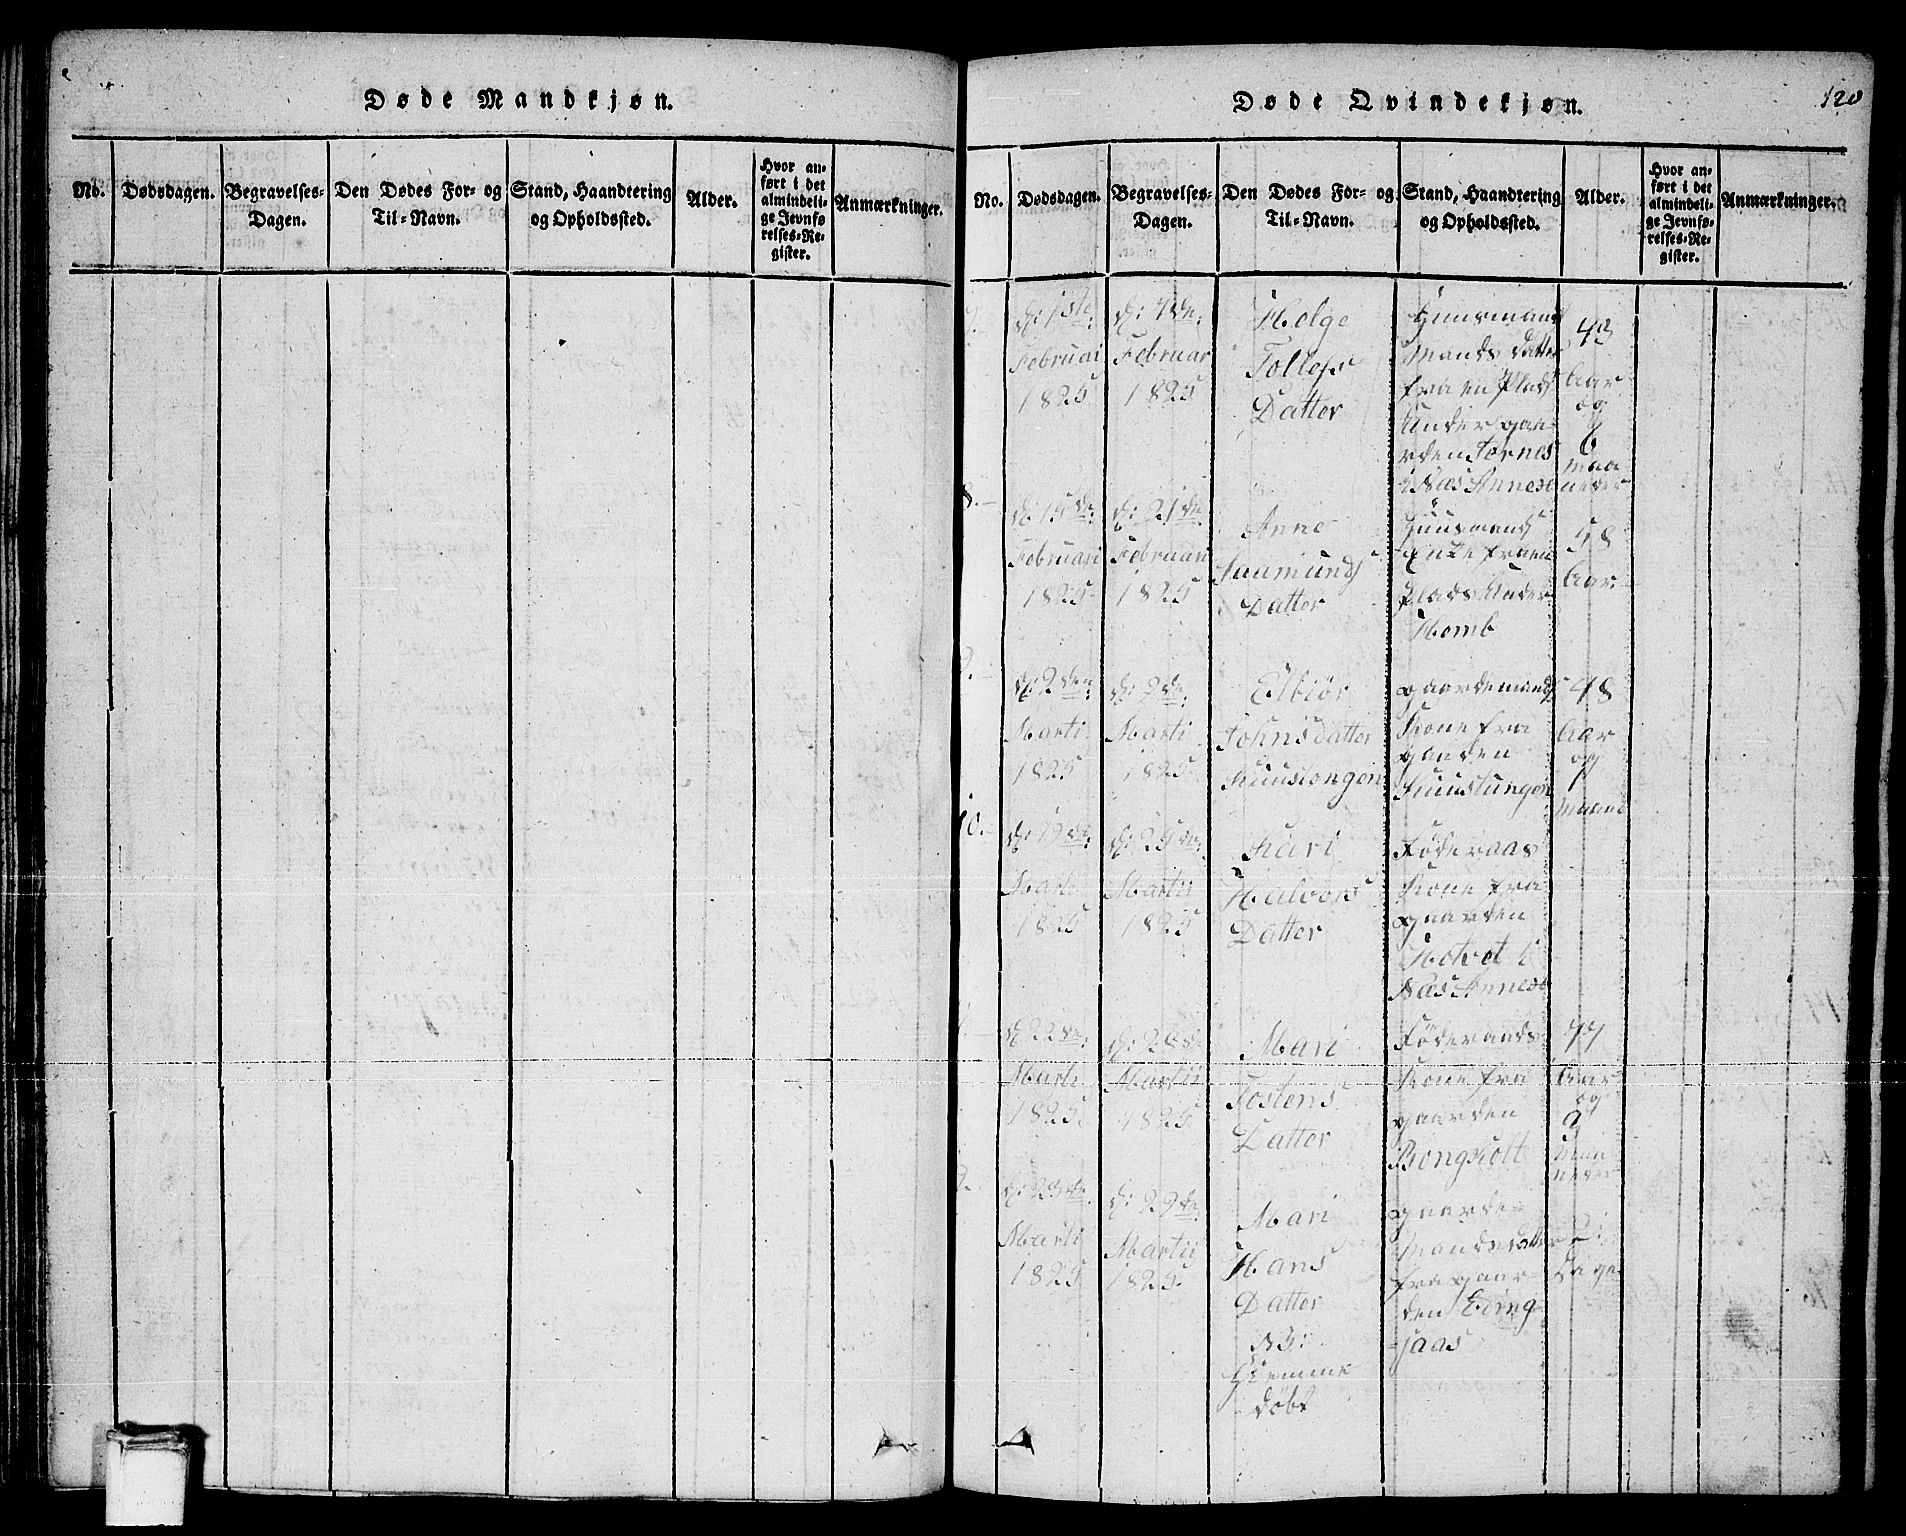 Døde Mandkjøn.
No.
Dødsdagen.
Begravelses-
Dagen.
Den Dødes For- og
Til-Navn.
Stand, Haandtering
og Opholdssted.
Alder.
Hvor an-
ført i det
almindeli-
ge Jevnfø-
relses-Re-
gister.
Anmærkninger.
Døde Qvindekjøn.
120
No.
Dødsdagen.
Begravelses-
Dagen.
Den Dødes For- og
Til-Navn.
Stand, Haandtering
og Opholdssted.
Alder.
Hvor an-
ført i det
almindeli-
ge Jevnfø-
relses-Re-
gister.
Anmærkninger.
d: 1ste
Februar
1825
d: 7de:
Februar
1825
Helge
Tollefs
Datter
Huusmans
Mands datter
fra en Plads
Under gaa-
rden Tornes
i Næs Annex
43
Aar
og
6
maa
neder
8.
d: 15de:
Februari
1825
d: 21de
Februari
1825
Anne
Aamunds
Datter
Huusmands
Enke fra en
Plads Under
Homb
58
Aar
d: 2den
Marti
1825
d: 9de:
Marti
1825
Elbiør
Johnsdatter
gaardemands
Kone fra
gaarden
48
Aar
og
maaned
10.
d: 19de:
Marti
1825
d: 25de:
Martii
1825
Kari
Halvors
Datter
Føderaas
Kone fra
gaarden
Hotvet i
Næs Annex
d: 22de:
Marti
1825
d: 28de
Martii
1825
Mari
Tostens
Datter
Føderaads
Kone fra
gaarden
Bongsholt
77
Aar
og
9
maa
neder
d: 23de
Marti
1825
d: 29de:
Martii
1825
Mari
Hans
Datter
NB:
Hiemme
døbt
gaarde-
Mands datter
fra gaar-
den Eding
-saas
2:
dage